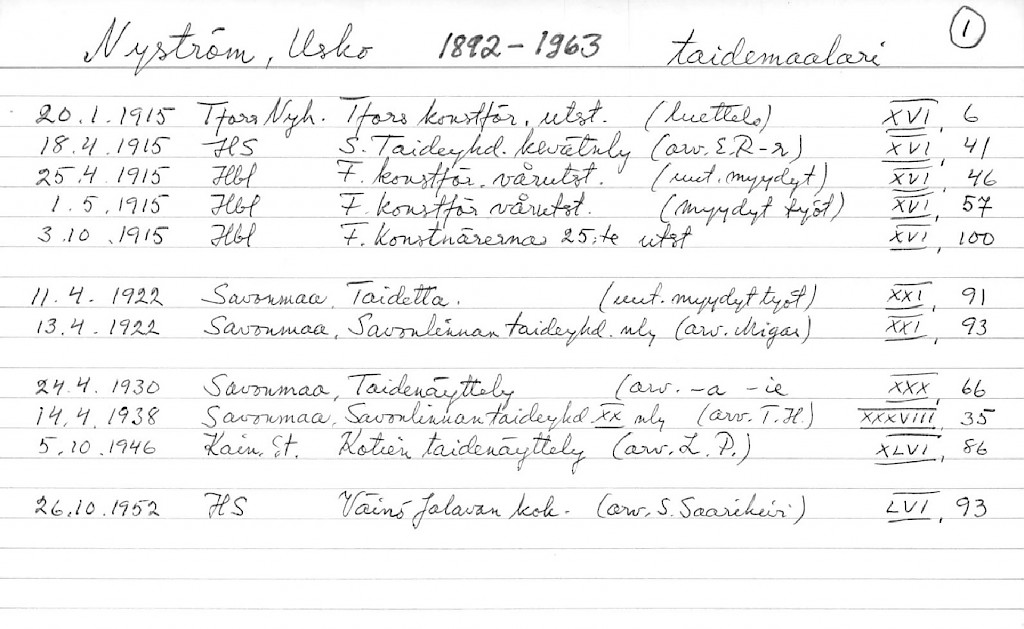 Nyström, Usko 1892-1963 taidemaalari 1
20.1.1915 Tfors Nyh. Tfors konstför. utst. (luettelo) XVI, 6
18.4.1915 HS S. Taideyhd. kevätnly (arv. E.R-r) XVI, 41
25.4.1915 Hbl F. konstför. vårutst. (uut. myydyt) XVI, 46
1.5.1915 Hbl F. konstför vårutst. (myydyt työt) XVI, 57
3.10.1915 Hbl F. Konstnärernas 25:te utst XVI, 100
11.4.1922 Savonmaa, Taidetta. (uut. myydyt työt) XXI, 91
13.4.1922 Savonmaa, Savonlinnan taideyhd. nly (arv. Migas) XXI, 93
24.4.1930 Savonmaa, Taidenäyttely (arv. -a -ie XXX, 66
14.4.1938 Savonmaa, Savonlinnan taideyhd XX nly (arv. T.H.) XXXVIII, 35
5.10.1946 Kain. St. Kotien taidenäyttely (arv. L.P.) XLVI, 86
26.10.1952 HS Väinö Jalavan kok. (arv. S. Saarikivi) LVI, 93